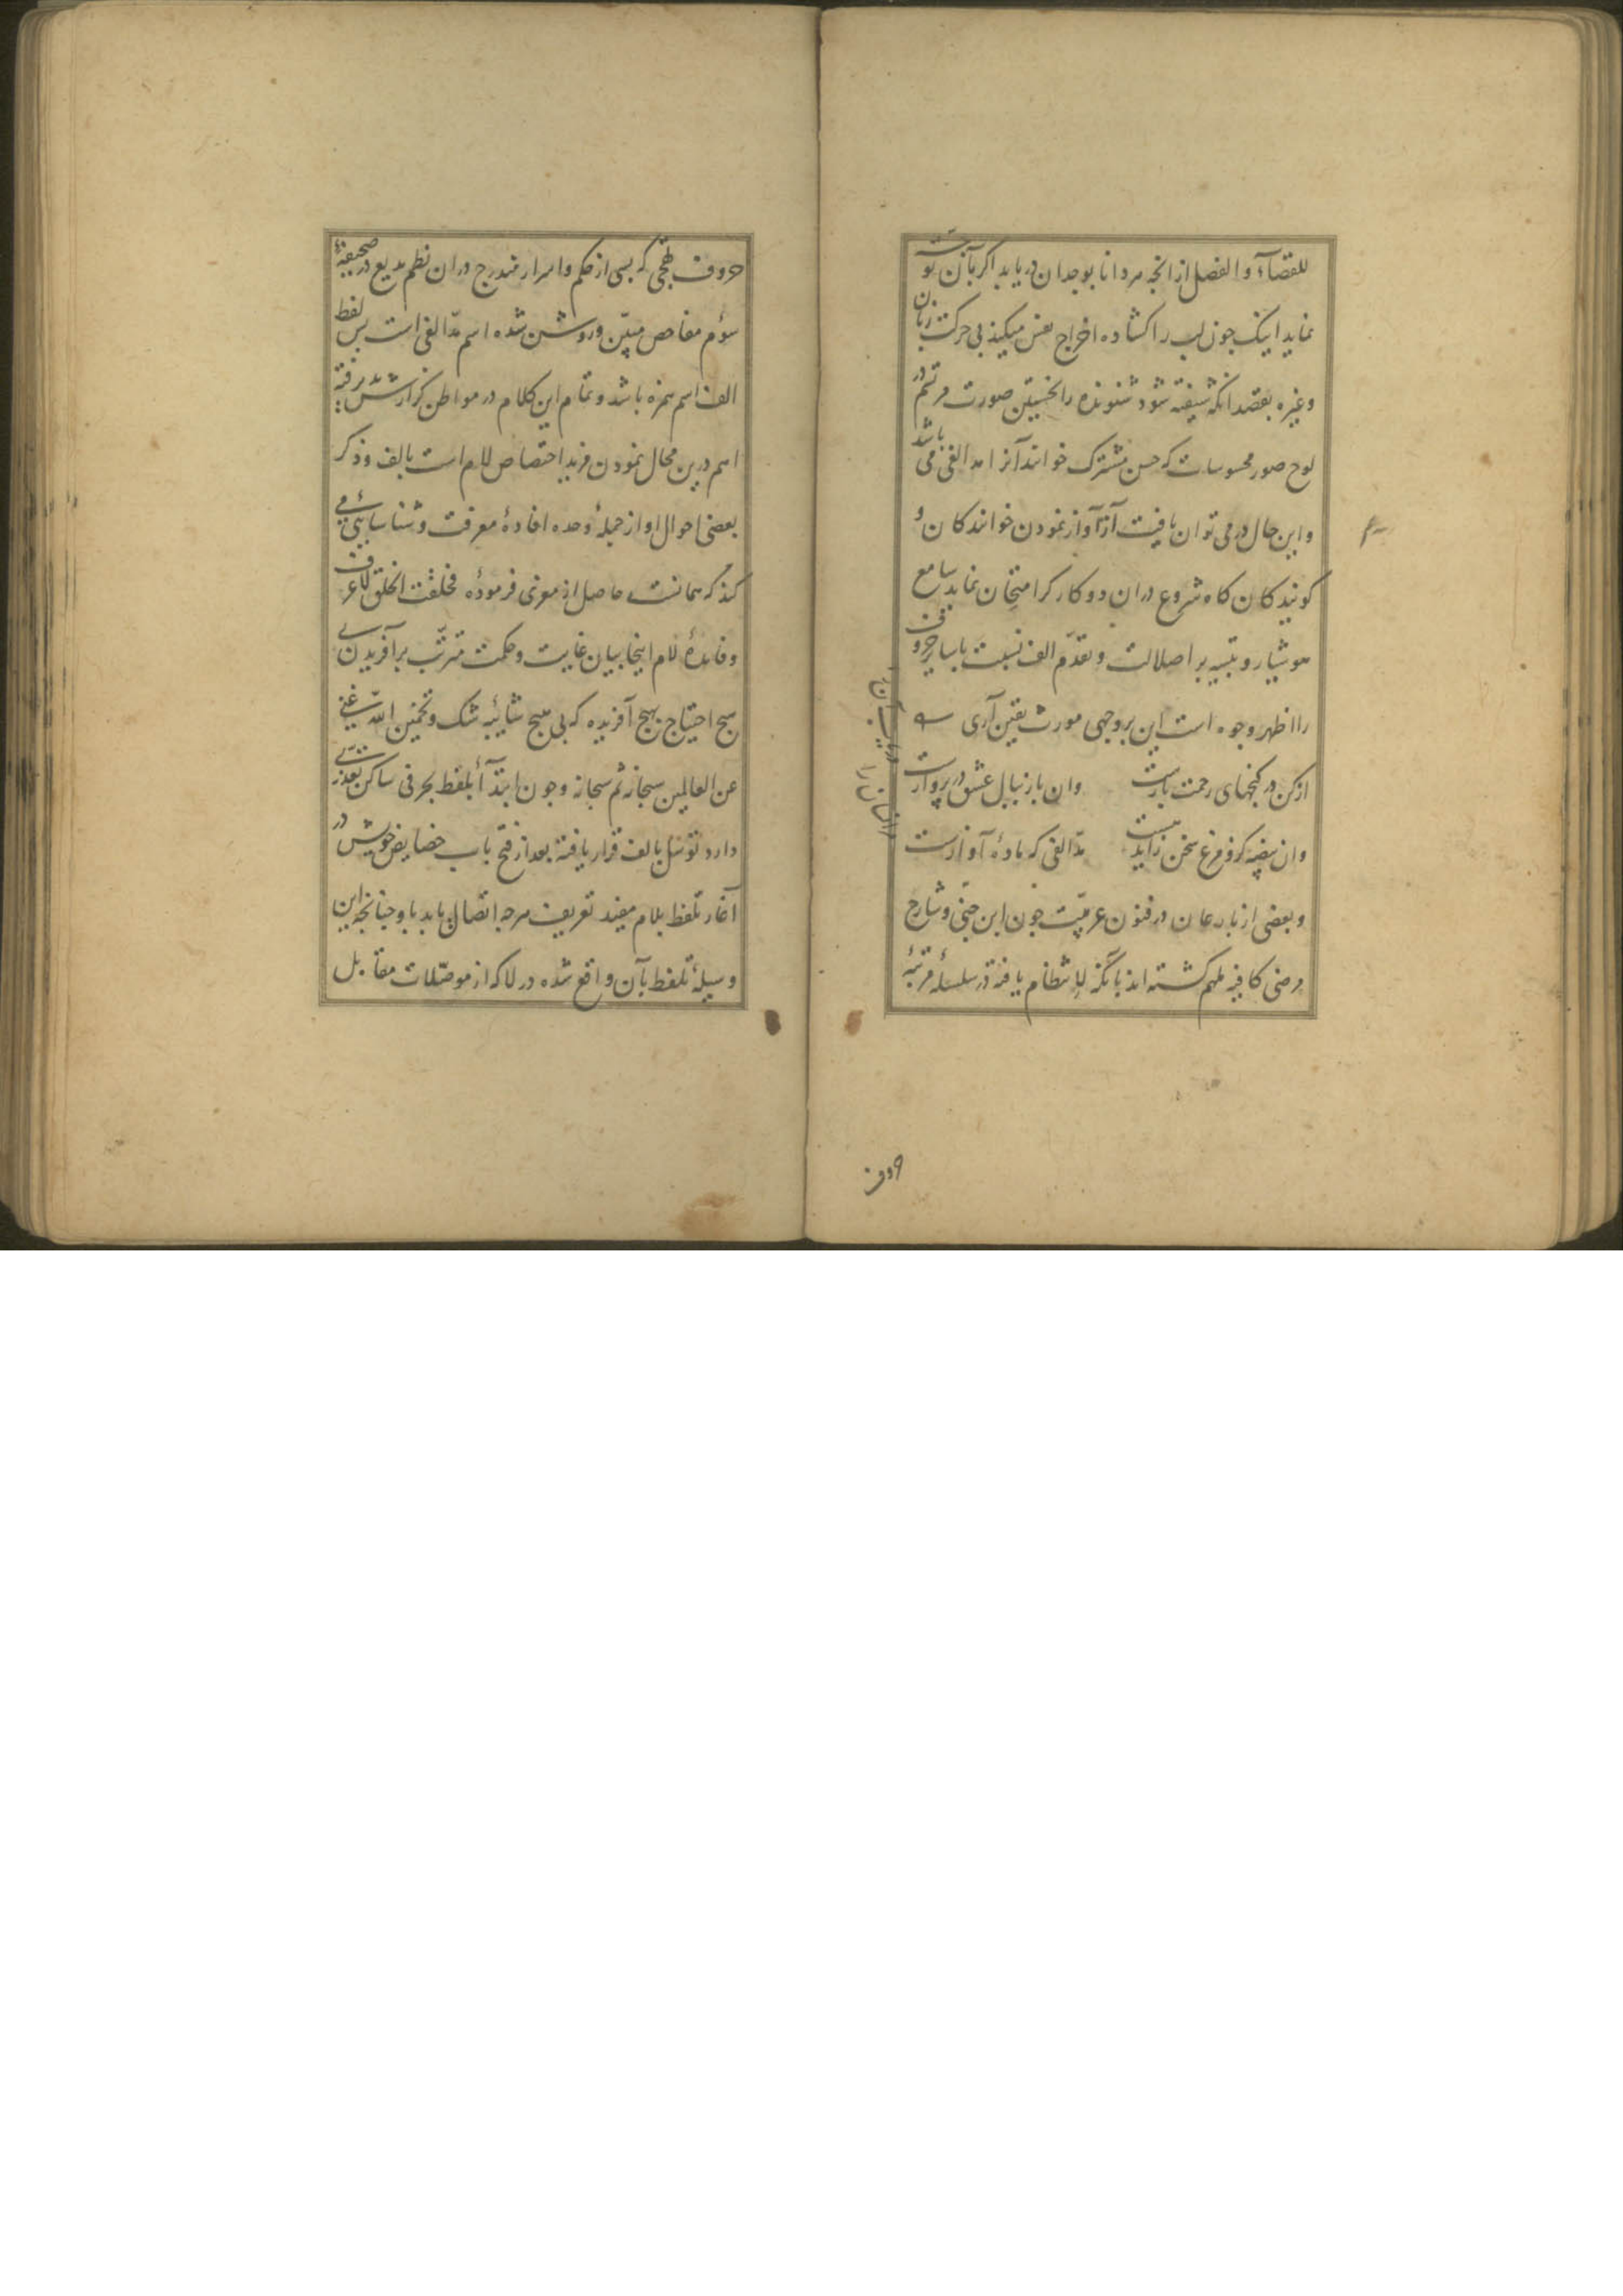 للقضاء و الفصل از انجه مر دانا بوجدان دریابد اکر بآن توجه
نماید اینک جون لب را کشاده اخراج نفس میکند بی حرکت زبان
و غیره بقصد انکه شنیفته شود شنونده را نخستین صورت مرتسم در
لوح صور محسوسات که حس مشترک خوانند آنرا مد الفی می باشد
و این حال در می توان یافت از آواز نمودن خوانندکان و
کویندکان کاه شروع دران دو کار کر امتحان نماید سامع
هوشیار و تنبیه بر اصالت و تقدم الف نسبت با سایر حروف
را اظهر وجوه است این بر وجهی مورث یقین آری
از کن در کنجهای رحمت بازست
وان باز ببال عشق در پروازست
وان بیضه کزو مرغ سخن زاید
مد الفی که ماده آوازست
و بعضی از بارعان در فنون عربیت جون ابن جنی و شارح
رضی کافیه ملهم کشته اند بآنکه لا انتظام یافته در سلسله مرتبه
حروف
حروف تهجی که بسی از حکم و اسرار مندرج دران نظم بدیع در صحیفه
سوم مفاحص مبین و روشن شده اسم مد الفی است بس لفظ
الف اسم همزه باشد و تمام این کلام در مواطن کزارش بذیرفته
اسم درین محال نمودن مزید اختصاص لام است بالف و ذکر
بعضی احوال او از جمله وحده افاده معرفت و شناسائی می
کند که همانست حاصل از مغزی فرموده فخلقت الخلق لاعرف
و فایده لام اینجا بیان غایت و حکمت مترتب بر آفریدن بی
هیج احتیاج بهیج آفریده که بی هیج شائبه شک و تخمین الله غنی
عن العالمین سبحانه ثم سبحانه و جون ابتدآ بلفظ بحرفی ساکن تعذر
دارد توسل بالف قرار یافته بعد از فتح باب خصایص خویش در
آغاز تلفظ بلام مفید تعریف هرجه اتصال یابد باو جنانجه این
وسیله تلفظ بآن واقع شده در لا که از موصلات مقابل